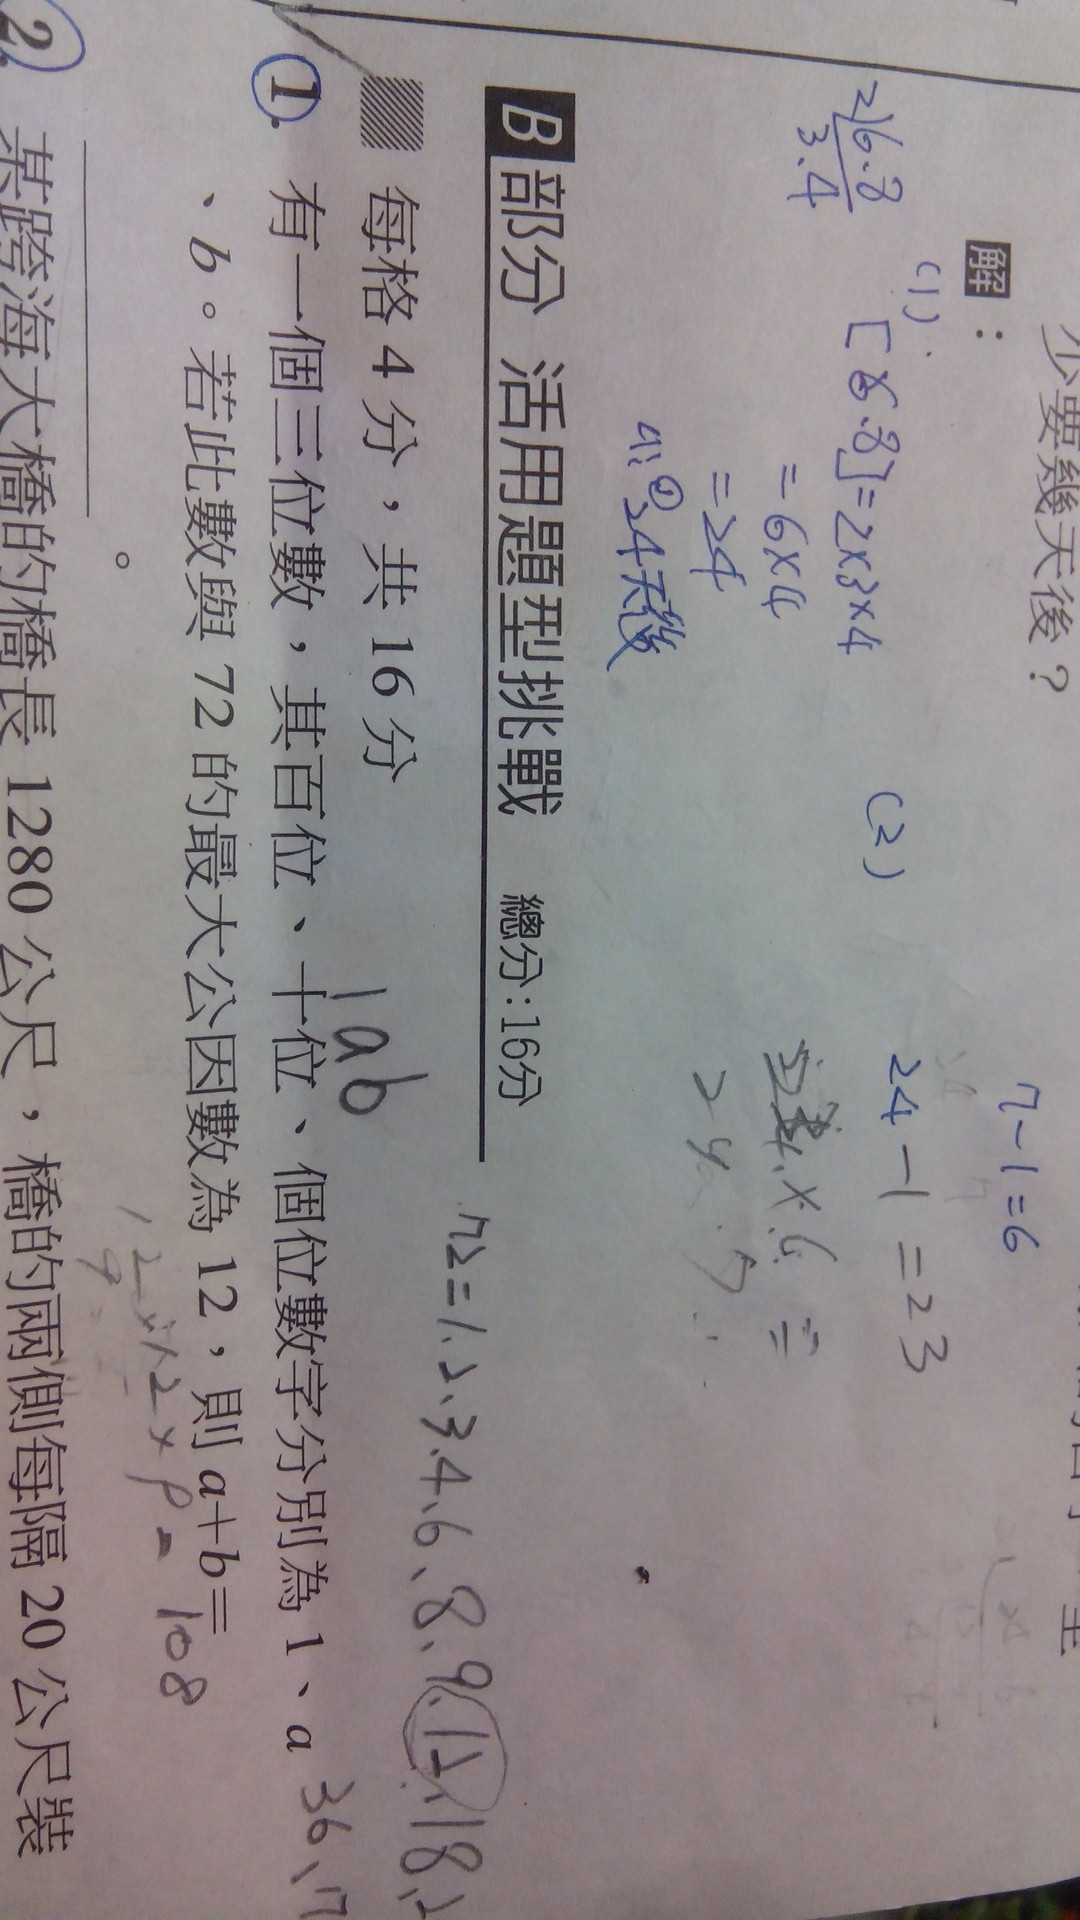 少要幾天後？
7-1=6
解：
(1)
2)6.8
3.4
[6.8]=2×3×4
=6×4
=24
24天後
(2)
24-1=23
B部分 活用題型挑戰 總分：16分
每格 4 分，共 16 分
1ab
72=1.2.3.4.6、8、9.12.18
36、7
1. 有一個三位數，其百位、十位、個位數字分別為 1、a
、b。若此數與 72 的最大公因數為 12，則 a+b=
。
108
2. 某跨海大橋的橋長 1280 公尺，橋的兩側每隔 20 公尺裝